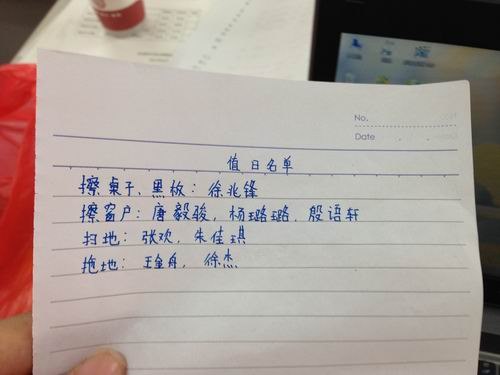 No.
Date
值日名单
擦桌子、黑板：徐兆锋
擦窗户：唐毅骏，杨璐璐，殷语轩
扫地：张欢，朱佳琪
拖地：王金舟，徐杰